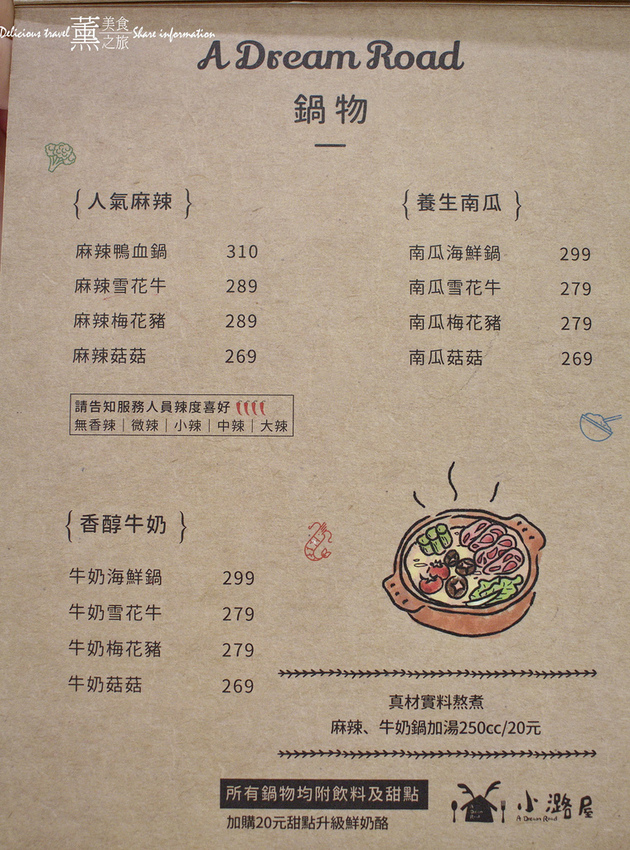 Delicious travel 薰 美食之旅 Share information
A Dream Road
鍋物
{人氣麻辣}
麻辣鴨血鍋 310
麻辣雪花牛 289
麻辣梅花豬 289
麻辣菇菇 269
請告知服務人員辣度喜好
無香辣｜微辣｜小辣｜中辣｜大辣
{養生南瓜}
南瓜海鮮鍋 299
南瓜雪花牛 279
南瓜梅花豬 279
南瓜菇菇 269
{香醇牛奶}
牛奶海鮮鍋 299
牛奶雪花牛 279
牛奶梅花豬 279
牛奶菇菇 269
真材實料熬煮
麻辣、牛奶鍋加湯250cc/20元
所有鍋物均附飲料及甜點
加購20元甜點升級鮮奶酪
小潞屋
A Dream Road